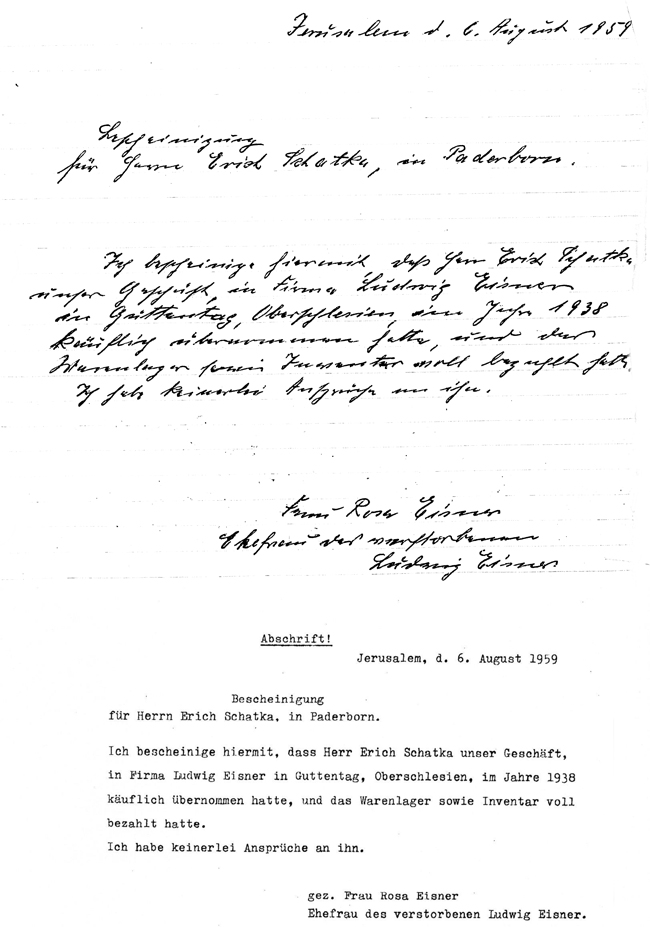 Jerusalem d. 6. August 1959
Bescheinigung
für Herrn Erich Schatka, in Paderborn.
Ich bescheinige hiermit, daß Herr Erich Schatka
unser Geschäft, in Firma Ludwig Eisner
in Guttentag, Oberschlesien, im Jahre 1938
käuflich übernommen hatte, und das
Warenlager sowie Inventar voll bezahlt hatte.
Ich habe keinerlei Ansprüche an ihn.
Frau Rosa Eisner
Ehefrau des verstorbenen
Ludwig Eisner
Abschrift!
Jerusalem, d. 6. August 1959
Bescheinigung
für Herrn Erich Schatka, in Paderborn.
Ich bescheinige hiermit, dass Herr Erich Schatka unser Geschäft,
in Firma Ludwig Eisner in Guttentag, Oberschlesien, im Jahre 1938
käuflich übernommen hatte, und das Warenlager sowie Inventar voll
bezahlt hatte.
Ich habe keinerlei Ansprüche an ihn.
gez. Frau Rosa Eisner
Ehefrau des verstorbenen Ludwig Eisner.